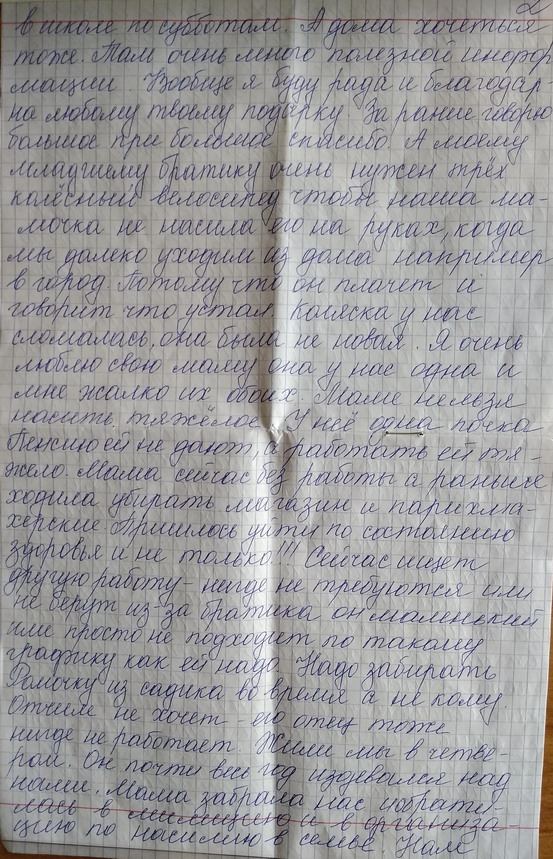 2
в школе по субботам. А дома хочеться
тоже. Там очень много полезной инофор
мации. Вообще я буду рада и благодар
на любому твоему подарку. За рание говорю
большое при большое спасибо. А моему
младшему братику очень нужен трёх
колёсный велосипед чтобы наша ма-
мочка не насила его на руках, когда
мы далеко уходим из дома например
в город. Потому что он плачет и
говорит что устал. Коляска у нас
сломалась, она была не новая. Я очень
люблю свою маму она у нас одна и
мне жалко их обоих. Маме нельзя
насить тяжёлое. У неё одна почка
Пенсию ей не дают, а работать ей тя-
жело. Мама сейчас без работы а раньше
ходила убирать магазин и парихма-
херские Пришлось уйти по состоянию
здоровья и не только!!! Сейчас ищет
другую работу - нигде не требуются или
не берут из-за братика он маленький
или просто не подходит по такому
графику как ей надо. Надо забирать
Ромочку из садика во время а не кому
Отчим не хочет - его отец тоже
нигде не работает. Жили мы в четве-
ром. Он почти весь год издевался над
нами. Мама забрала нас и обрати-
лась в милицию и в организа-
цию по насилию в семье. Нам